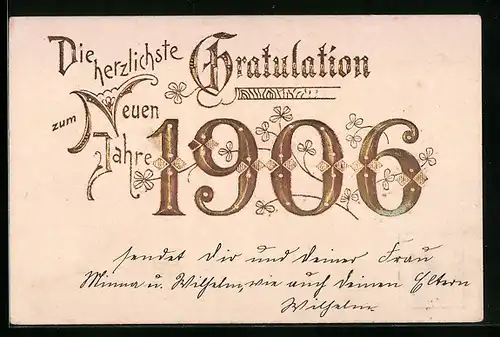 Die herzlichste Gratulation
zum Neuen
Jahre
1906
sendet Dir und deiner Frau
Minna u. Wilhelm, wie auch deinen Eltern
Wilhelm